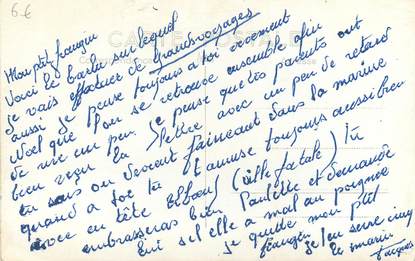 6.€
CARTE POSTALE
Mon ptit frangin
Voici le bateau sur lequel
je vais effectuer de grands voyages
aussi je pense toujours à toi vivement
Noel que l'on se retrouve ensemble afin
de rire un peu. Je pense que tes parents ont
bien reçu la lettre avec un peu de retard
tu sais on devient fainéant dans la marine
quand à toi tu t'amuse toujours aussi bien
avec en tête Elboeuf (ville fatale) Tu
embrasseras bien Paulette et demande
lui si elle a mal au poignet
je quitte mon ptit
frangin je t'en serre cinq
le marin